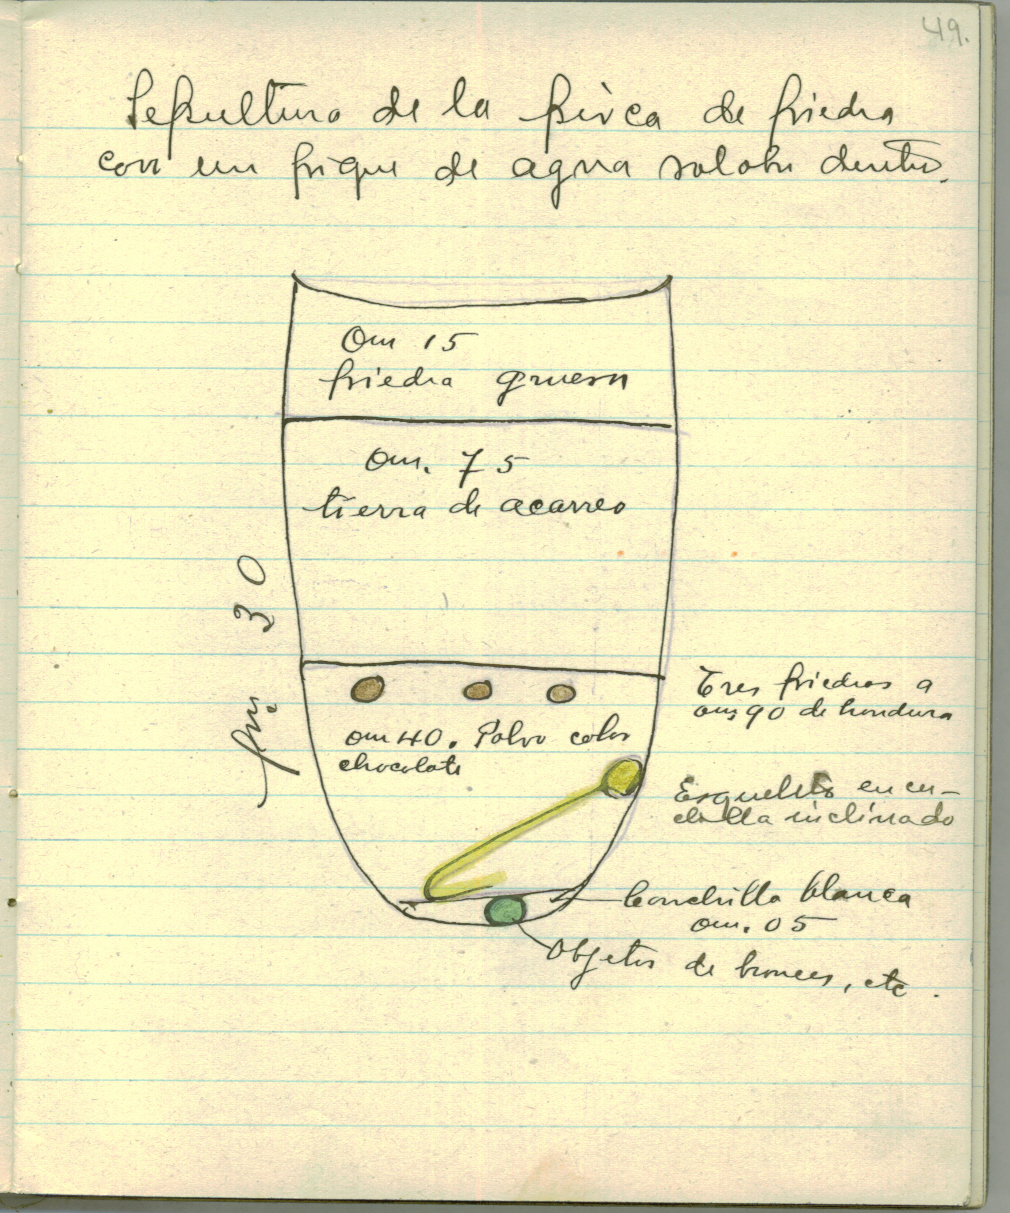 49.
Sepultura de la pirca de piedra
con un pique de agua salobre dentro.
0m 15
piedra gruesa
0m. 75
tierra de acarreo
1m 30
Tres piedras a
0m 90 de hondura
0m 40. Polvo color
chocolate
Esqueleto en cu-
clilla inclinado
Conchilla blanca
0m. 05
Objetos de bronces, etc.